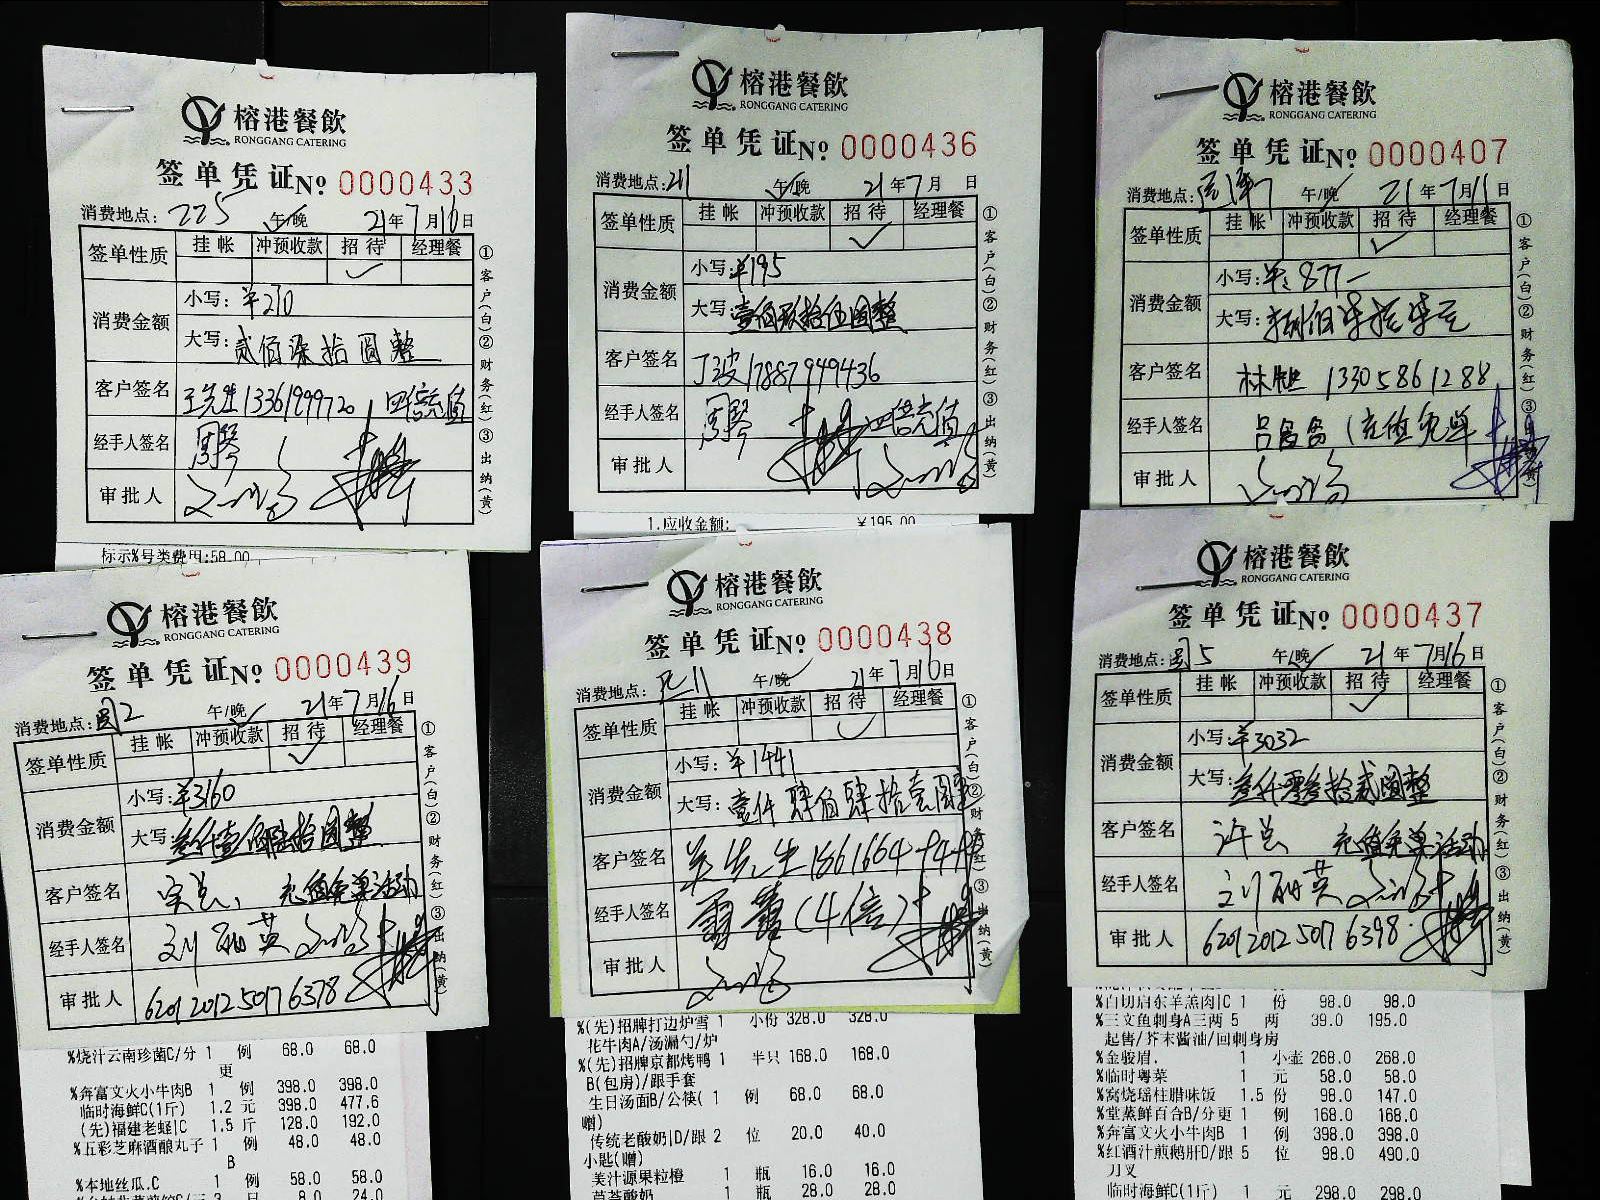 榕港餐飲
RONGGANG CATERING
签单凭证№ 0000433
消费地点: 225 午/晚 21年7月16日
签单性质 挂帐 冲预收款 招待 经理餐
✓
消费金额 小写: ¥270
大写: 贰佰柒拾圆整
客户签名 王先生13361999720 四倍充值
经手人签名 周琴
审批人
①客户(白)②财务(红)③出纳(黄)
标示%号类费用:58.00
榕港餐飲
RONGGANG CATERING
签单凭证№ 0000436
消费地点: 211 午/晚 21年7月 日
签单性质 挂帐 冲预收款 招待 经理餐
✓
消费金额 小写: ¥195
大写: 壹佰玖拾伍圆整
客户签名 丁波17887949436
经手人签名 周琴 四倍充值
审批人
①客户(白)②财务(红)③出纳(黄)
1.应收金额: ¥195.00
榕港餐飲
RONGGANG CATERING
签单凭证№ 0000407
消费地点: 午/晚 21年7月11日
签单性质 挂帐 冲预收款 招待 经理餐
✓
消费金额 小写: ¥:877-
大写: 捌佰柒拾柒元
客户签名 林 13305861288
经手人签名 (充值免单
审批人
①客户(白)②财务(红)③出纳(黄)
榕港餐飲
RONGGANG CATERING
签单凭证№ 0000439
消费地点: 闽2 午/晚 21年7月16日
签单性质 挂帐 冲预收款 招待 经理餐
✓
消费金额 小写: ¥3160
大写: 叁仟壹佰陆拾圆整
客户签名 宋总, 充值免单活动
经手人签名 刘丽英
审批人 6201 2012 5017 6378
①客户(白)②财务(红)③出纳(黄)
%烧汁云南珍菌C/分 1 例 68.0 68.0
更
%奔富文火小牛肉B 1 例 398.0 398.0
临时海鲜C(1斤) 1.2 元 398.0 477.6
(先)福建老蛏|C 1.5 斤 128.0 192.0
%五彩芝麻酒酿丸子 1 例 48.0 48.0
B
%本地丝瓜.C 1 例 58.0 58.0
8.0 24.0
榕港餐飲
RONGGANG CATERING
签单凭证№ 0000438
消费地点: 午/晚 21年7月16日
签单性质 挂帐 冲预收款 招待 经理餐
✓
消费金额 小写: ¥1441
大写: 壹仟肆佰肆拾壹圆整
客户签名 吴先生
经手人签名 (4倍)
审批人
①客户(白)②财务(红)③出纳(黄)
%(先)招牌打边炉雪 1 小份 328.0 328.0
花牛肉A/汤漏勺/炉
%(先)招牌京都烤鸭 1 半只 168.0 168.0
B(包房)/跟手套
生日汤面B/公筷( 1 例 68.0 68.0
赠)
传统老酸奶|D/跟 2 位 20.0 40.0
小匙(赠)
美汁源果粒橙 1 瓶 16.0 16.0
莫菩酸奶 1 瓶 28.0 28.0
榕港餐飲
RONGGANG CATERING
签单凭证№ 0000437
消费地点: 闽5 午/晚 21年7月16日
签单性质 挂帐 冲预收款 招待 经理餐
✓
消费金额 小写: ¥3032
大写: 叁仟零叁拾贰圆整
客户签名 许总 充值免单活动
经手人签名 刘丽英
审批人 6201 2012 5017 6398
①客户(白)②财务(红)③出纳(黄)
%白切启东羊羔肉|C 1 份 98.0 98.0
%三文鱼刺身A三两 5 两 39.0 195.0
起售/芥末酱油/回刺身房
%金骏眉. 1 小壶 268.0 268.0
%临时粤菜 1 元 58.0 58.0
%窝烧瑶柱腊味饭 1.5 份 98.0 147.0
%堂蒸鲜百合B/分更 1 例 168.0 168.0
%奔富文火小牛肉B 1 例 398.0 398.0
%红酒汁煎鹅肝D/跟 5 位 98.0 490.0
刀叉
临时海鲜C(1斤) 1 元 298.0 298.0